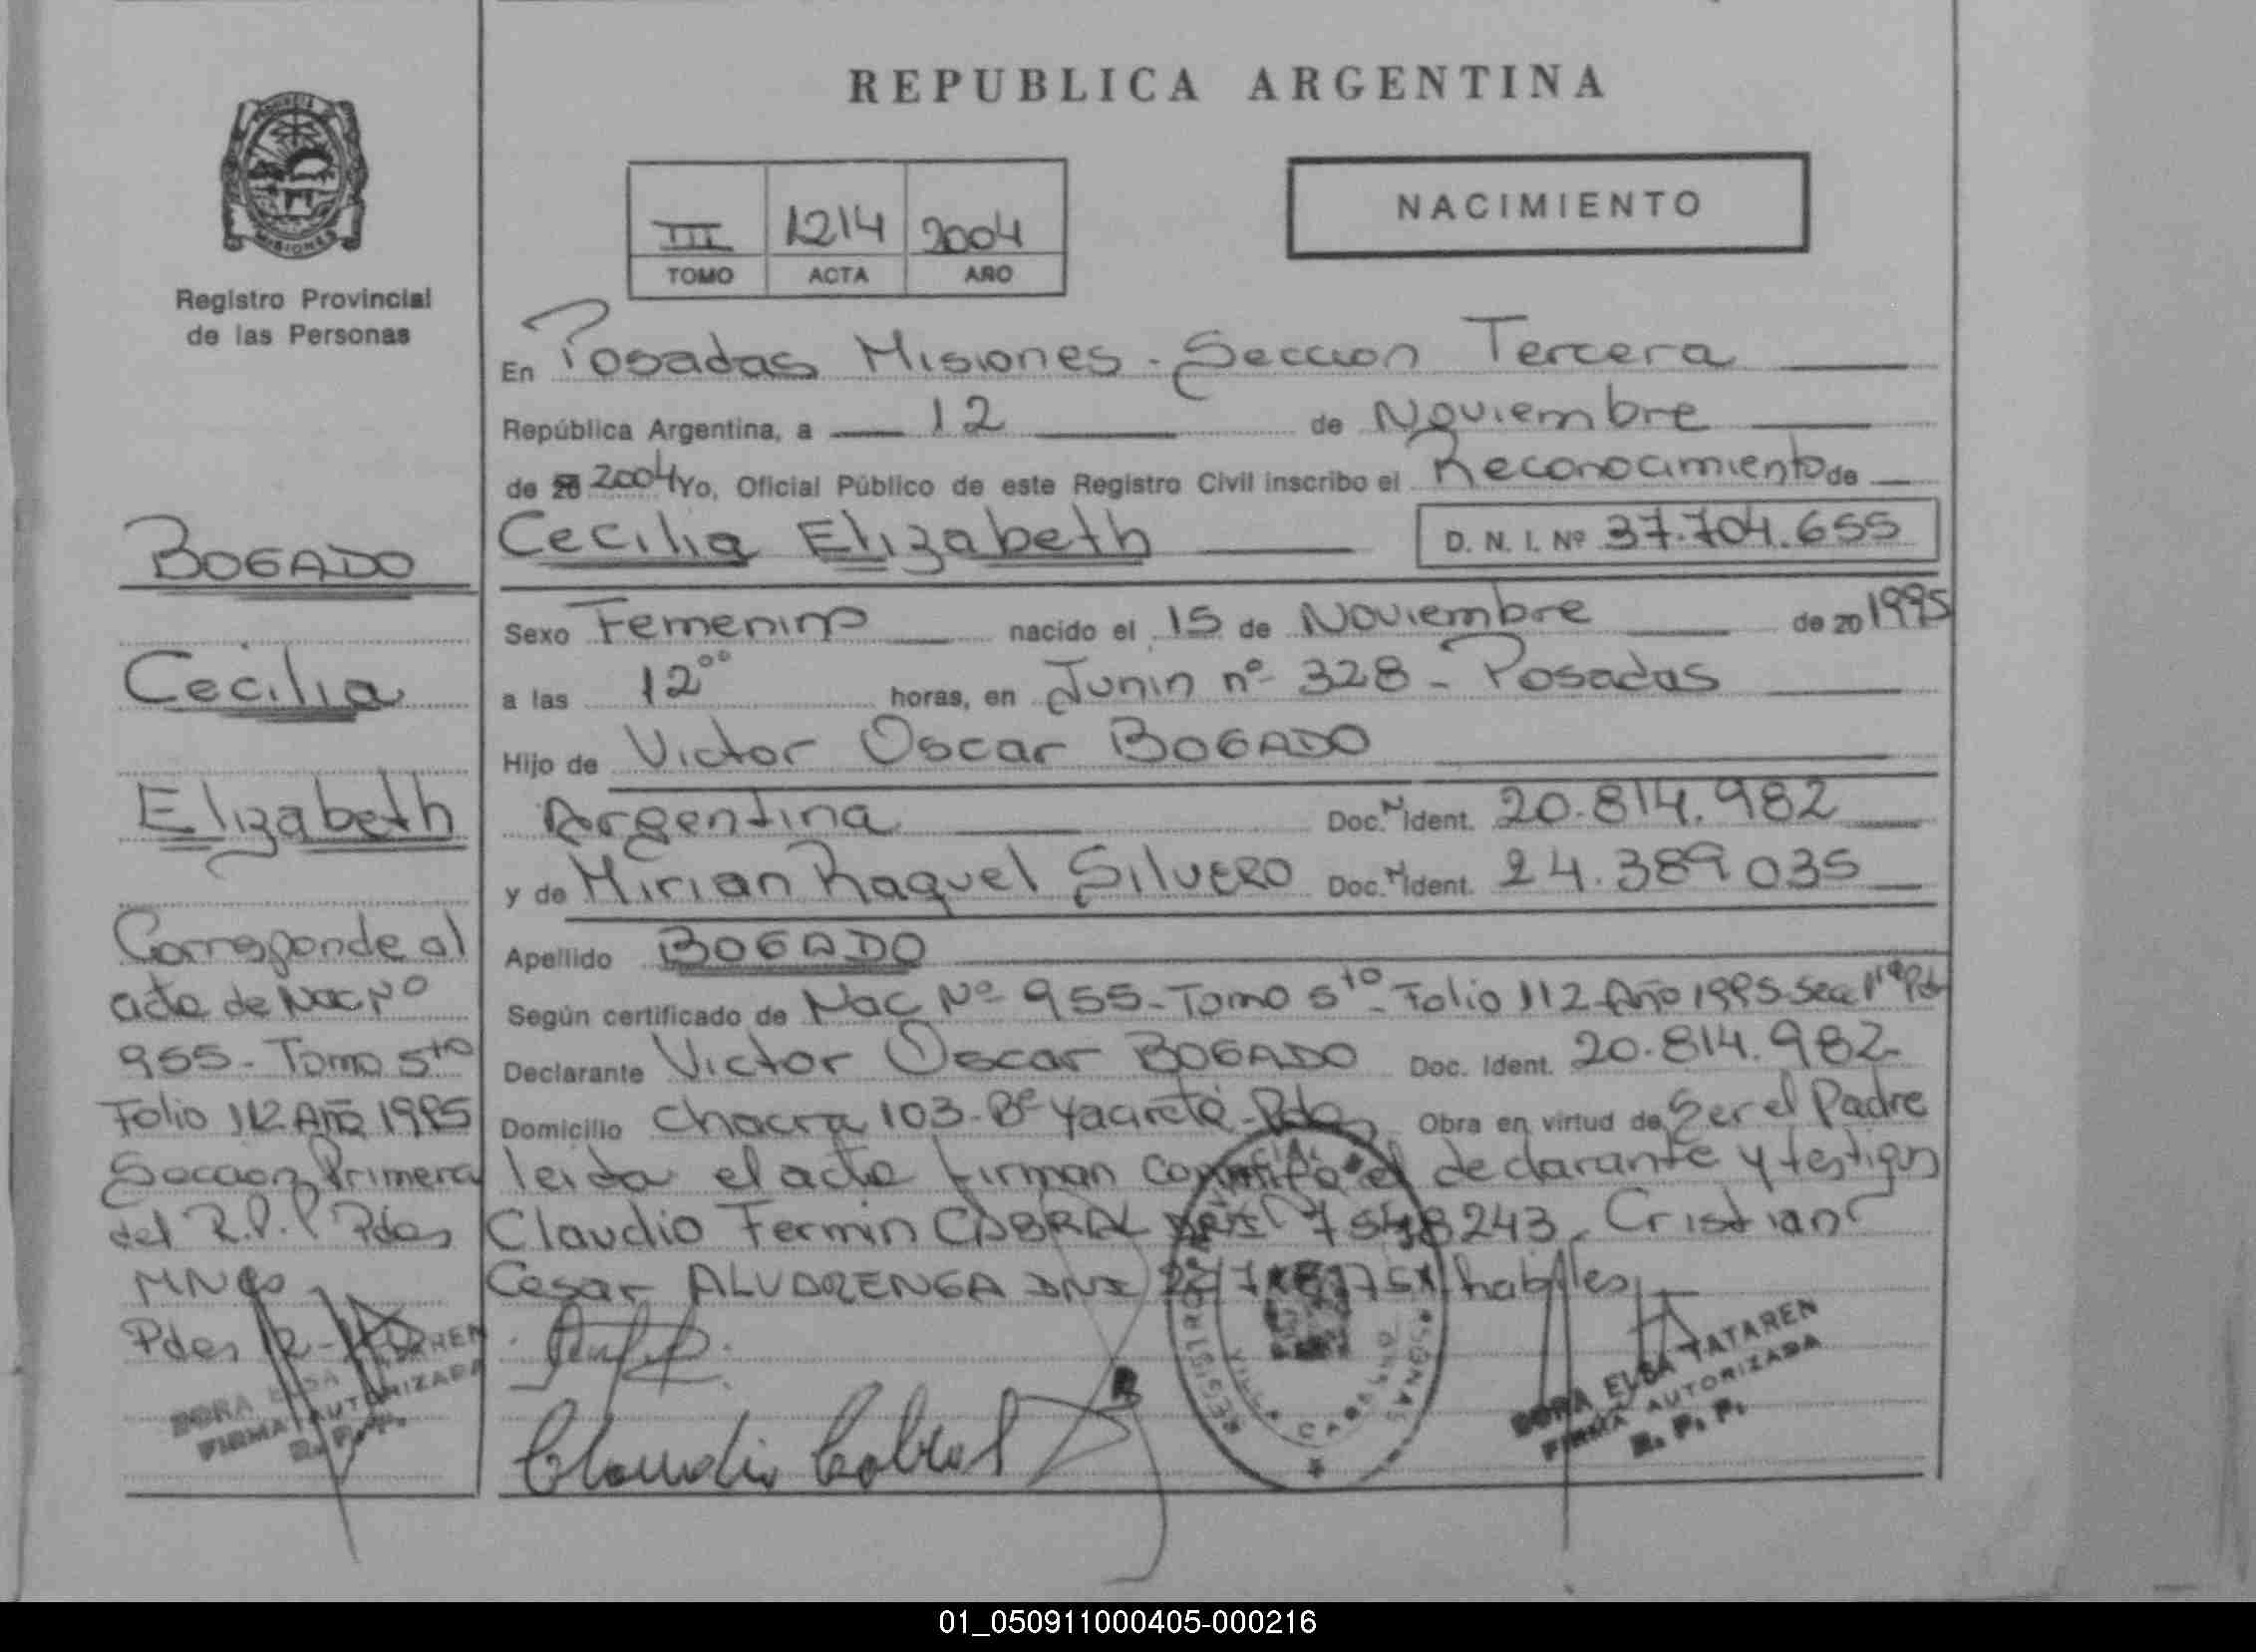 REPUBLICA ARGENTINA
NACIMIENTO
III 1214 2004
TOMO ACTA AÑO
MISIONES
Registro Provincial
de las Personas
BOGADO
Cecilia
Elizabeth
Corresponde al
acta de Nac Nº
955 - Tomo 5to
Folio 112 Año 1995
Seccion Primera
del R.P.P Pdas
MNes
Pdas 12-
DORA ELSA TATAREN
FIRMA AUTORIZADA
R. P. P.
En Posadas Misiones - Seccion Tercera
República Argentina, a 12 de Noviembre
de 20 2004 Yo, Oficial Público de este Registro Civil inscribo el Reconocimiento de
Cecilia Elizabeth D. N. I. Nº 37.704.655
Sexo Femenino nacido el 15 de Noviembre de 20 1995
a las 12°° horas, en Junin nº 328 - Posadas
Hijo de Victor Oscar BOGADO
Argentina Doc. N Ident. 20.814.982
y de Mirian Raquel SILVERO Doc. N Ident. 24.389035
Apellido BOGADO
Según certificado de Nac Nº 955 - Tomo 5to - Folio 112 - Año 1995 - Secc 1ra Pdas
Declarante Victor Oscar BOGADO Doc. Ident. 20.814.982
Domicilio Chacra 103 - Bº Yacireté - Pdas Obra en virtud de Ser el Padre
leida el acta firman conmigo el declarante y testigos
Claudio Fermin CABRAL DNI 7548243, Cristian
Cesar ALVARENGA DNI habiles
Claudio Cabral
DORA ELSA TATAREN
FIRMA AUTORIZADA
R. P. P.
01_050911000405-000216